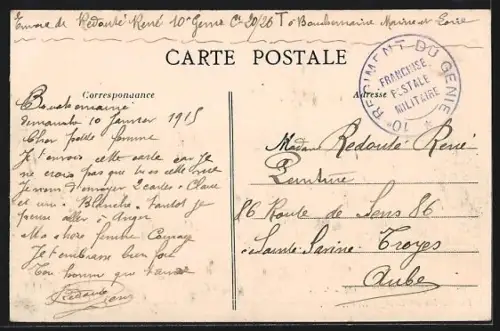 Envoi de Redouté René 10e Génie Cie 20/26 T à Bouchemaine Maine et Loire
CARTE POSTALE
Correspondance
Adresse
10e REGIMENT DU GENIE
FRANCHISE
POSTALE
MILITAIRE
Bouchemaine
dimanche 10 Janvier 1915
Cher petite femme
Je t'envois cette carte car je
ne crois pas que tu es cette vue
Je vient d'envoyer 2 cartes a Claire
et une a Blanche. Tantot je
pense aller a Anger
Ma chere femme Courage
Je t'embrasse bien fort
Ton homme qui t'aime
Redouté René
Madame Redouté René
Peinture
86 Route de Sens 86
à Sainte Savine Troyes
Aube